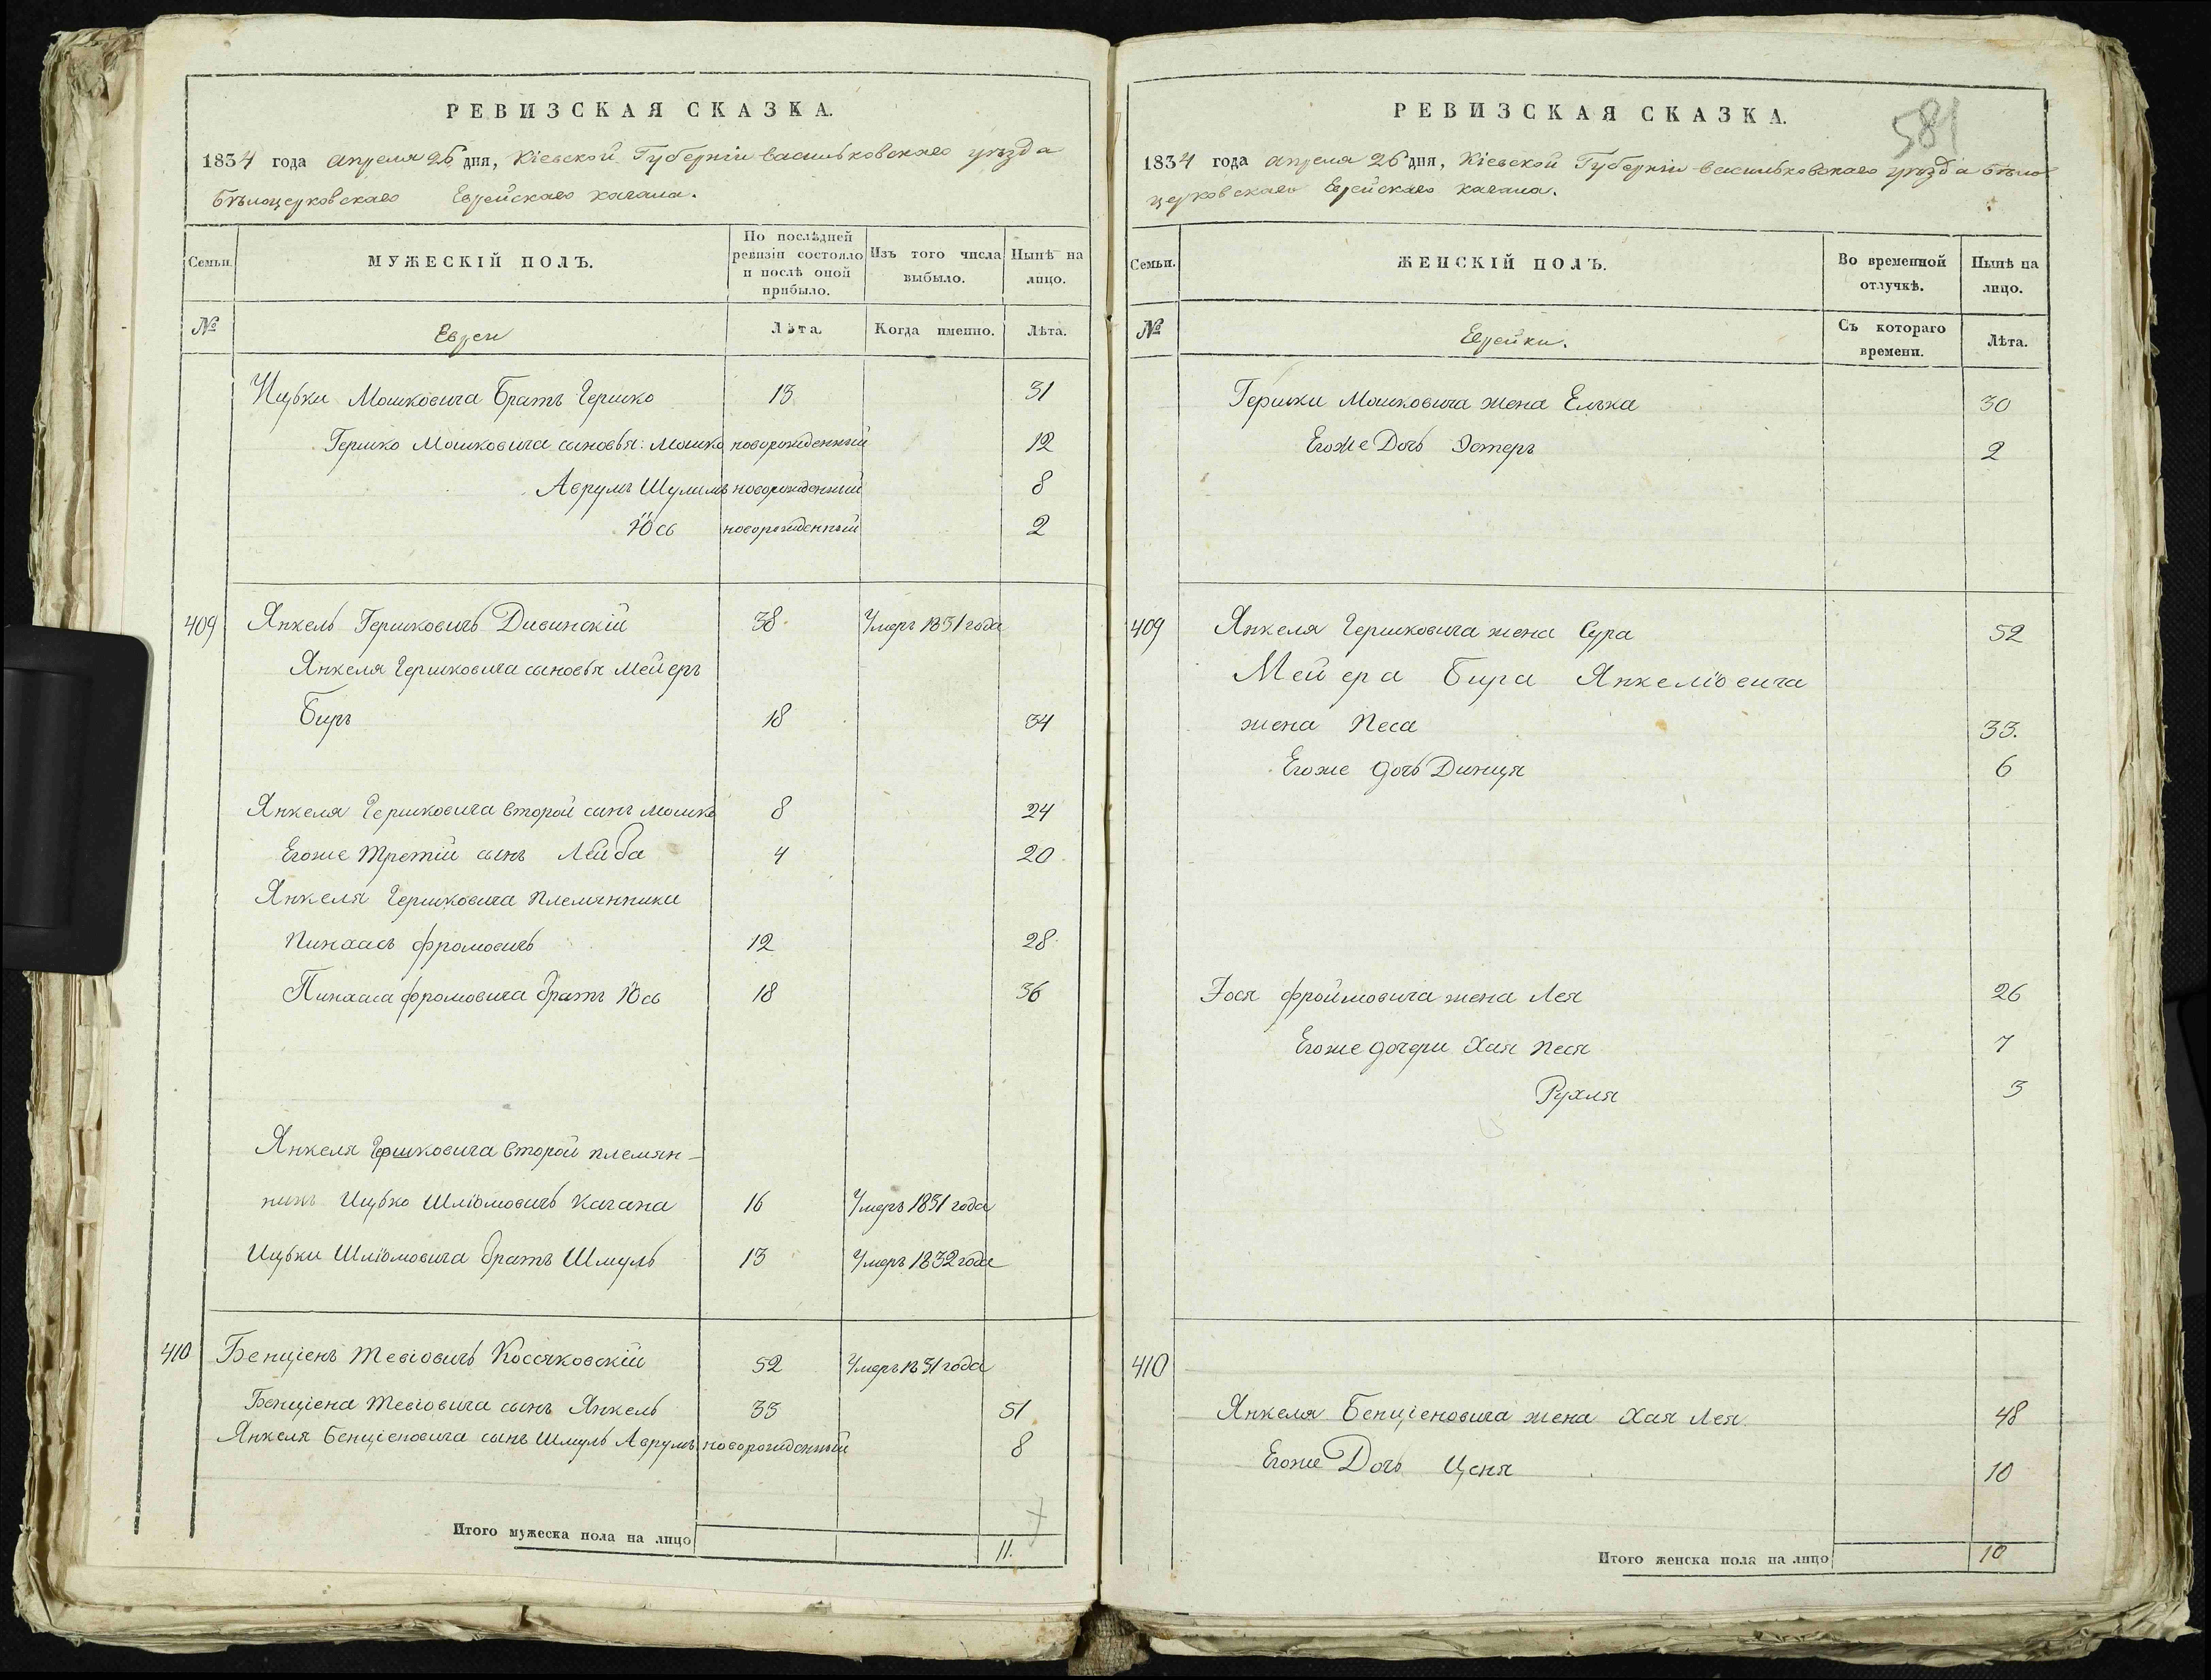 РЕВИЗСКАЯ СКАЗКА.
1834 года апреля 26 дня, Кіевской Губерніи Васильковскаго уѣзда
Бѣлоцерковскаго Еврейскаго кагала.
Семьи.
МУЖЕСКІЙ ПОЛЪ.
По послѣдней ревизіи состояло и послѣ оной прибыло.
Изъ того числа выбыло.
Нынѣ на лицо.
№
Евреи
Лѣта
Когда именно.
Лѣта.
Ицьки Мошковича Братъ Гершко 13 31
Гершко Мошковича сыновья: Мошко новорожденный 12
Аврумъ Шулимъ новорожденный 8
Юсь новорожденный 2
409 Янкель Гершковичь Дивинскій 38 Умеръ 1831 года
Янкеля Гершковича сыновья Мейеръ
Биръ 18 34
Янкеля Гершковича второй сынъ Мошко 8 24
Егоже третій сынъ Лейба 4 20
Янкеля Гершковича племянники
Пинхасъ Фромовичь 12 28
Пинхаса Фромовича братъ Юсь 18 36
Янкеля Гершковича второй племян-
никъ Ицько Шліомовичь Кагана 16 Умеръ 1831 года
Ицьки Шліомовича братъ Шмуль 13 Умеръ 1832 года
410 Бенціенъ Тевіовичь Косяковскій 52 Умеръ 1831 года
Бенціена Тевіовича сынъ Янкель 35 51
Янкеля Бенціеновича сынъ Шмуль Аврумъ новорожденный 8
Итого мужеска пола на лицо 11.
581
РЕВИЗСКАЯ СКАЗКА.
1834 года апреля 26 дня, Кіевской Губерніи Васильковскаго уѣзда Бѣло
церковскаго Еврейскаго кагала.
Семьи.
ЖЕНСКІЙ ПОЛЪ.
Во временной отлучкѣ.
Нынѣ на лицо.
№
Еврейки.
Съ котораго времени.
Лѣта.
Гершки Мошковича жена Елька 30
Егоже Дочь Эстеръ 2
409 Янкеля Гершковича жена Сура 52
Мейера Бира Янкеліовича
жена Песа 33.
Егоже дочь Динця 6
Іося Фроймовича жена Лея 26
Егоже дочери Хая Песя 7
Рухля 3
410
Янкеля Бенціеновича жена Хая Лея. 48
Егоже Дочь Ценя 10
Итого женска пола на лицо 10